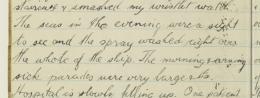 staircase & smashed my wristlet watch.
The seas in the evening were a sight
to see and the spray washed right over
the whole of the ship. The morning
sick parades were very large
Hospital is slowly filling up. One patient